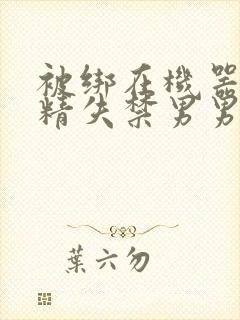 被绑在機器
精失禁男男
葉六勿